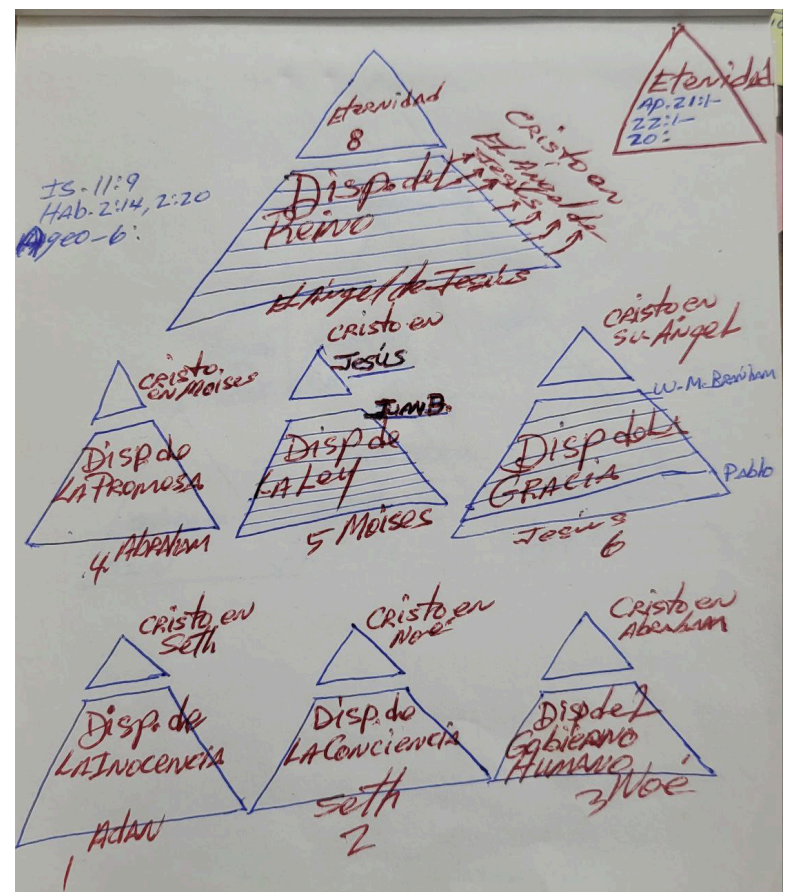 Eternidad
AP. 21:1-
22:1-
20:
Eternidad
8
Cristo en
El Angel de
Jesús
IS. 11:9
HAb. 2:14, 2:20
Ageo-6:
Disp. del
Reino
El Angel de Jesús
Cristo
en Moises
Disp de
LA Promesa
4. Abraham
Cristo en
Jesús
Juan B.
Disp de
LA Ley
5 Moises
Cristo en
su Angel
W. M. Branham
Disp de La
GRACIA
Pablo
Jesús
6
Cristo en
Seth
Disp. de
LA Inocencia
Adan
1
Cristo en
Noé
Disp. de
LA Conciencia
Seth
2
Cristo en
Abraham
Disp del
Gobierno
Humano
3 Noé